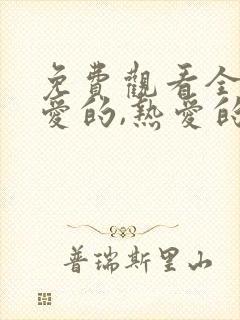 免費觀看全
愛的,熱愛的
普瑞斯里山